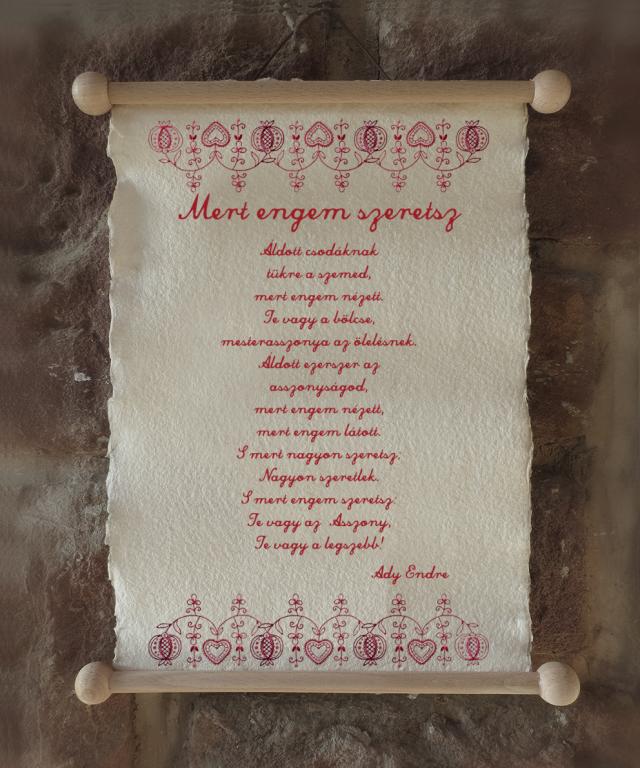 Mert engem szeretsz
Áldott csodáknak
tükre a szemed,
mert engem nézett.
Te vagy a bölcse,
mesterasszonya az ölelésnek.
Áldott ezerszer az
asszonyságod,
mert engem nézett,
mert engem látott.
S mert nagyon szeretsz:
Nagyon szeretlek.
S mert engem szeretsz:
Te vagy az Asszony,
Te vagy a legszebb!
Ady Endre